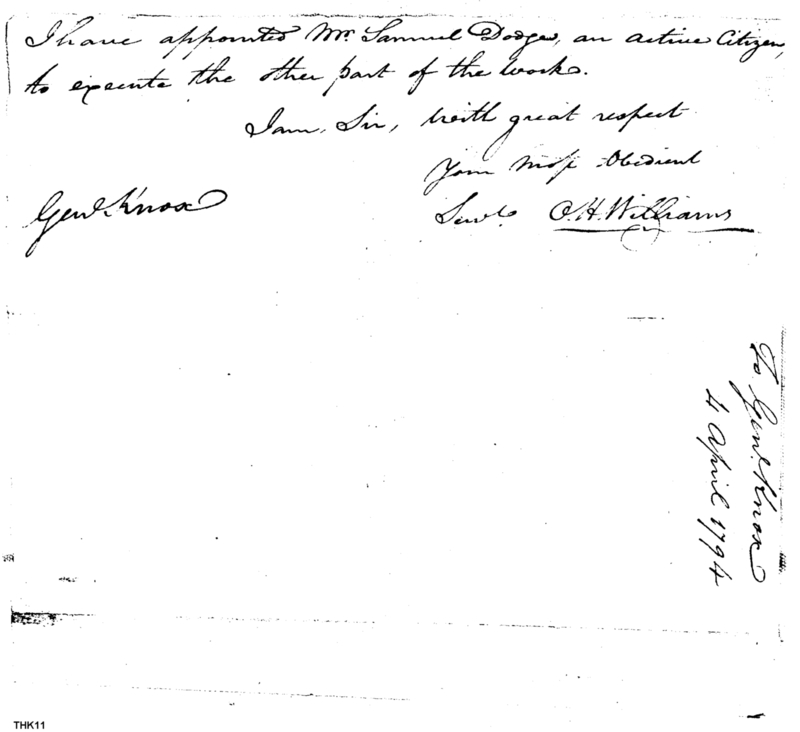 I have appointed Mr. Samuel Dodge, an active Citizen,
to execute the other part of the work.
I am, Sir, With great respect
Your Most Obedient
Servt. O. H. Williams
Genl. Knox
To Genl. Knox
4 April 1794
THK11